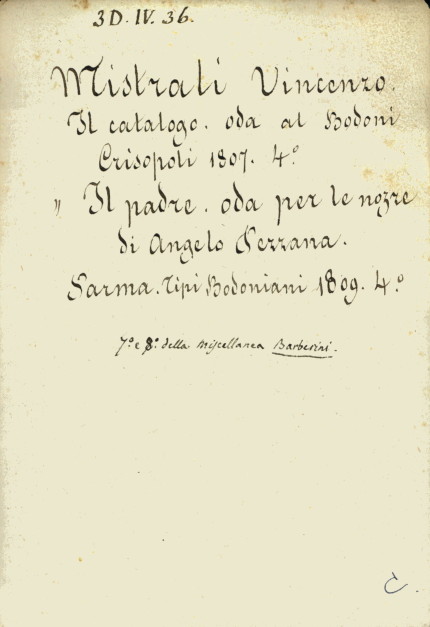 3D. IV. 36.
Mistrali Vincenzo.
Il catalogo. oda al Bodoni
Crisopoli 1807. 4.°
" Il padre. oda per le nozze
di Angelo Pezzana.
Parma. Tipi Bodoniani 1809. 4.°
7.° e 8.° della Miscellanea Barberini.
C.